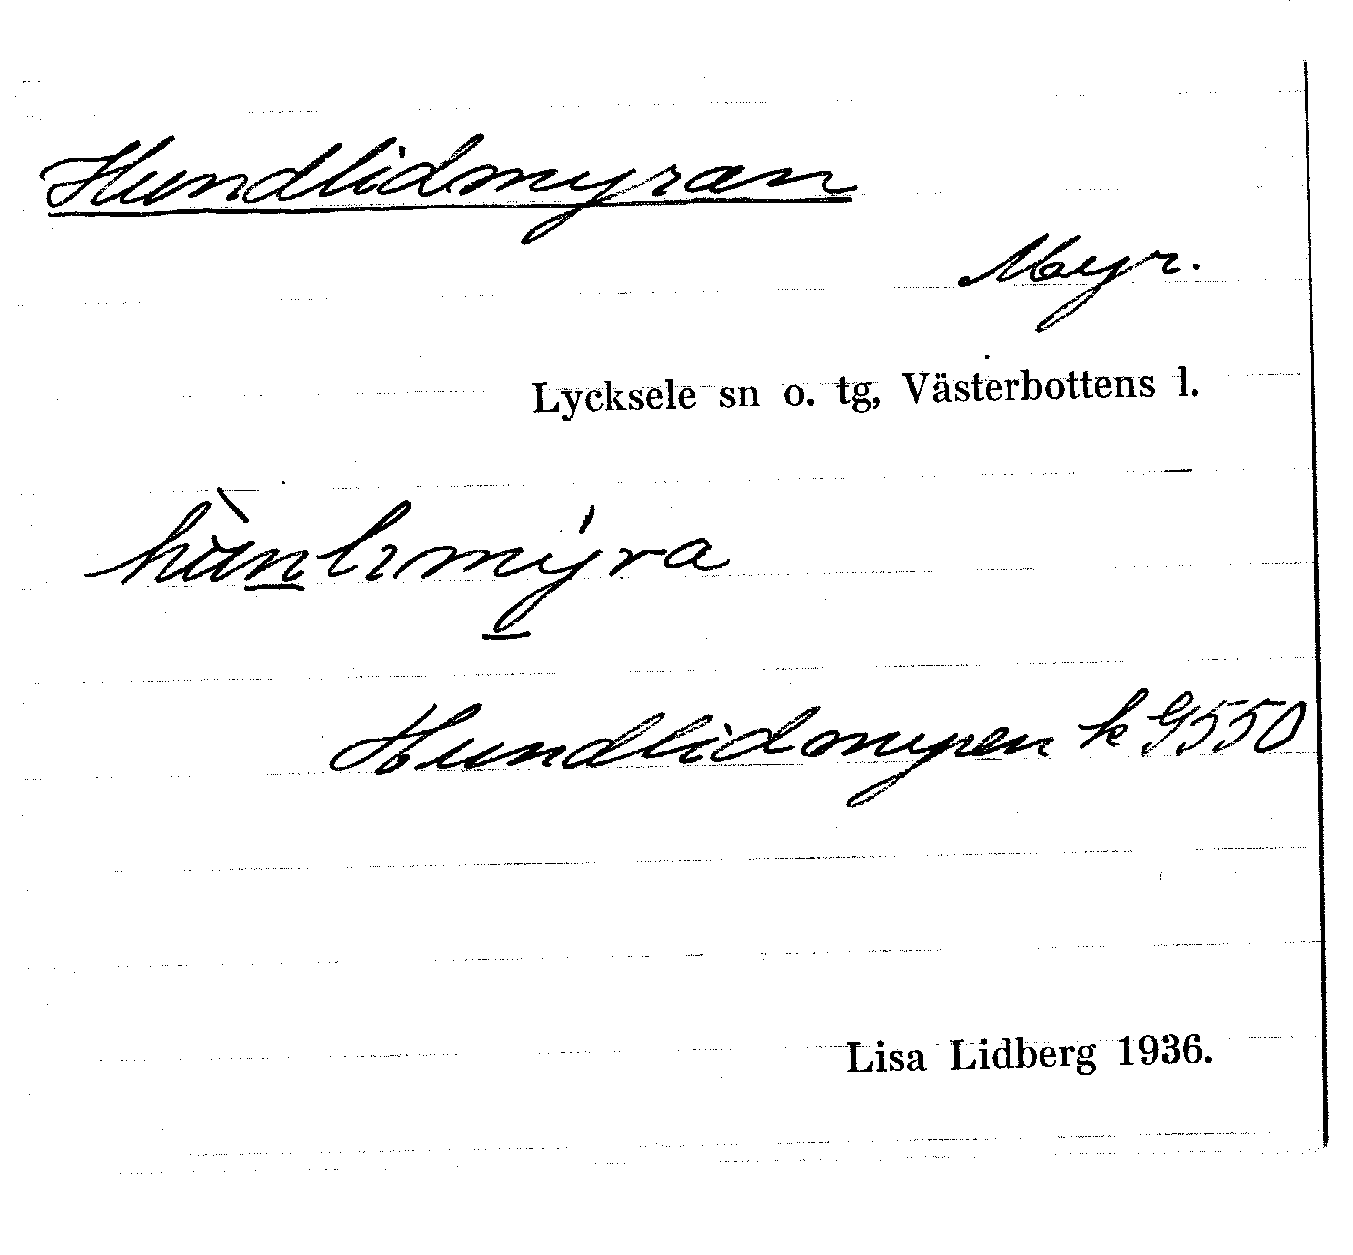 Hundlidmyran
Myr.
Lycksele sn o. tg, Västerbottens l.
hùnlımýra
Hundlidmyren k 9550
Lisa Lidberg 1936.